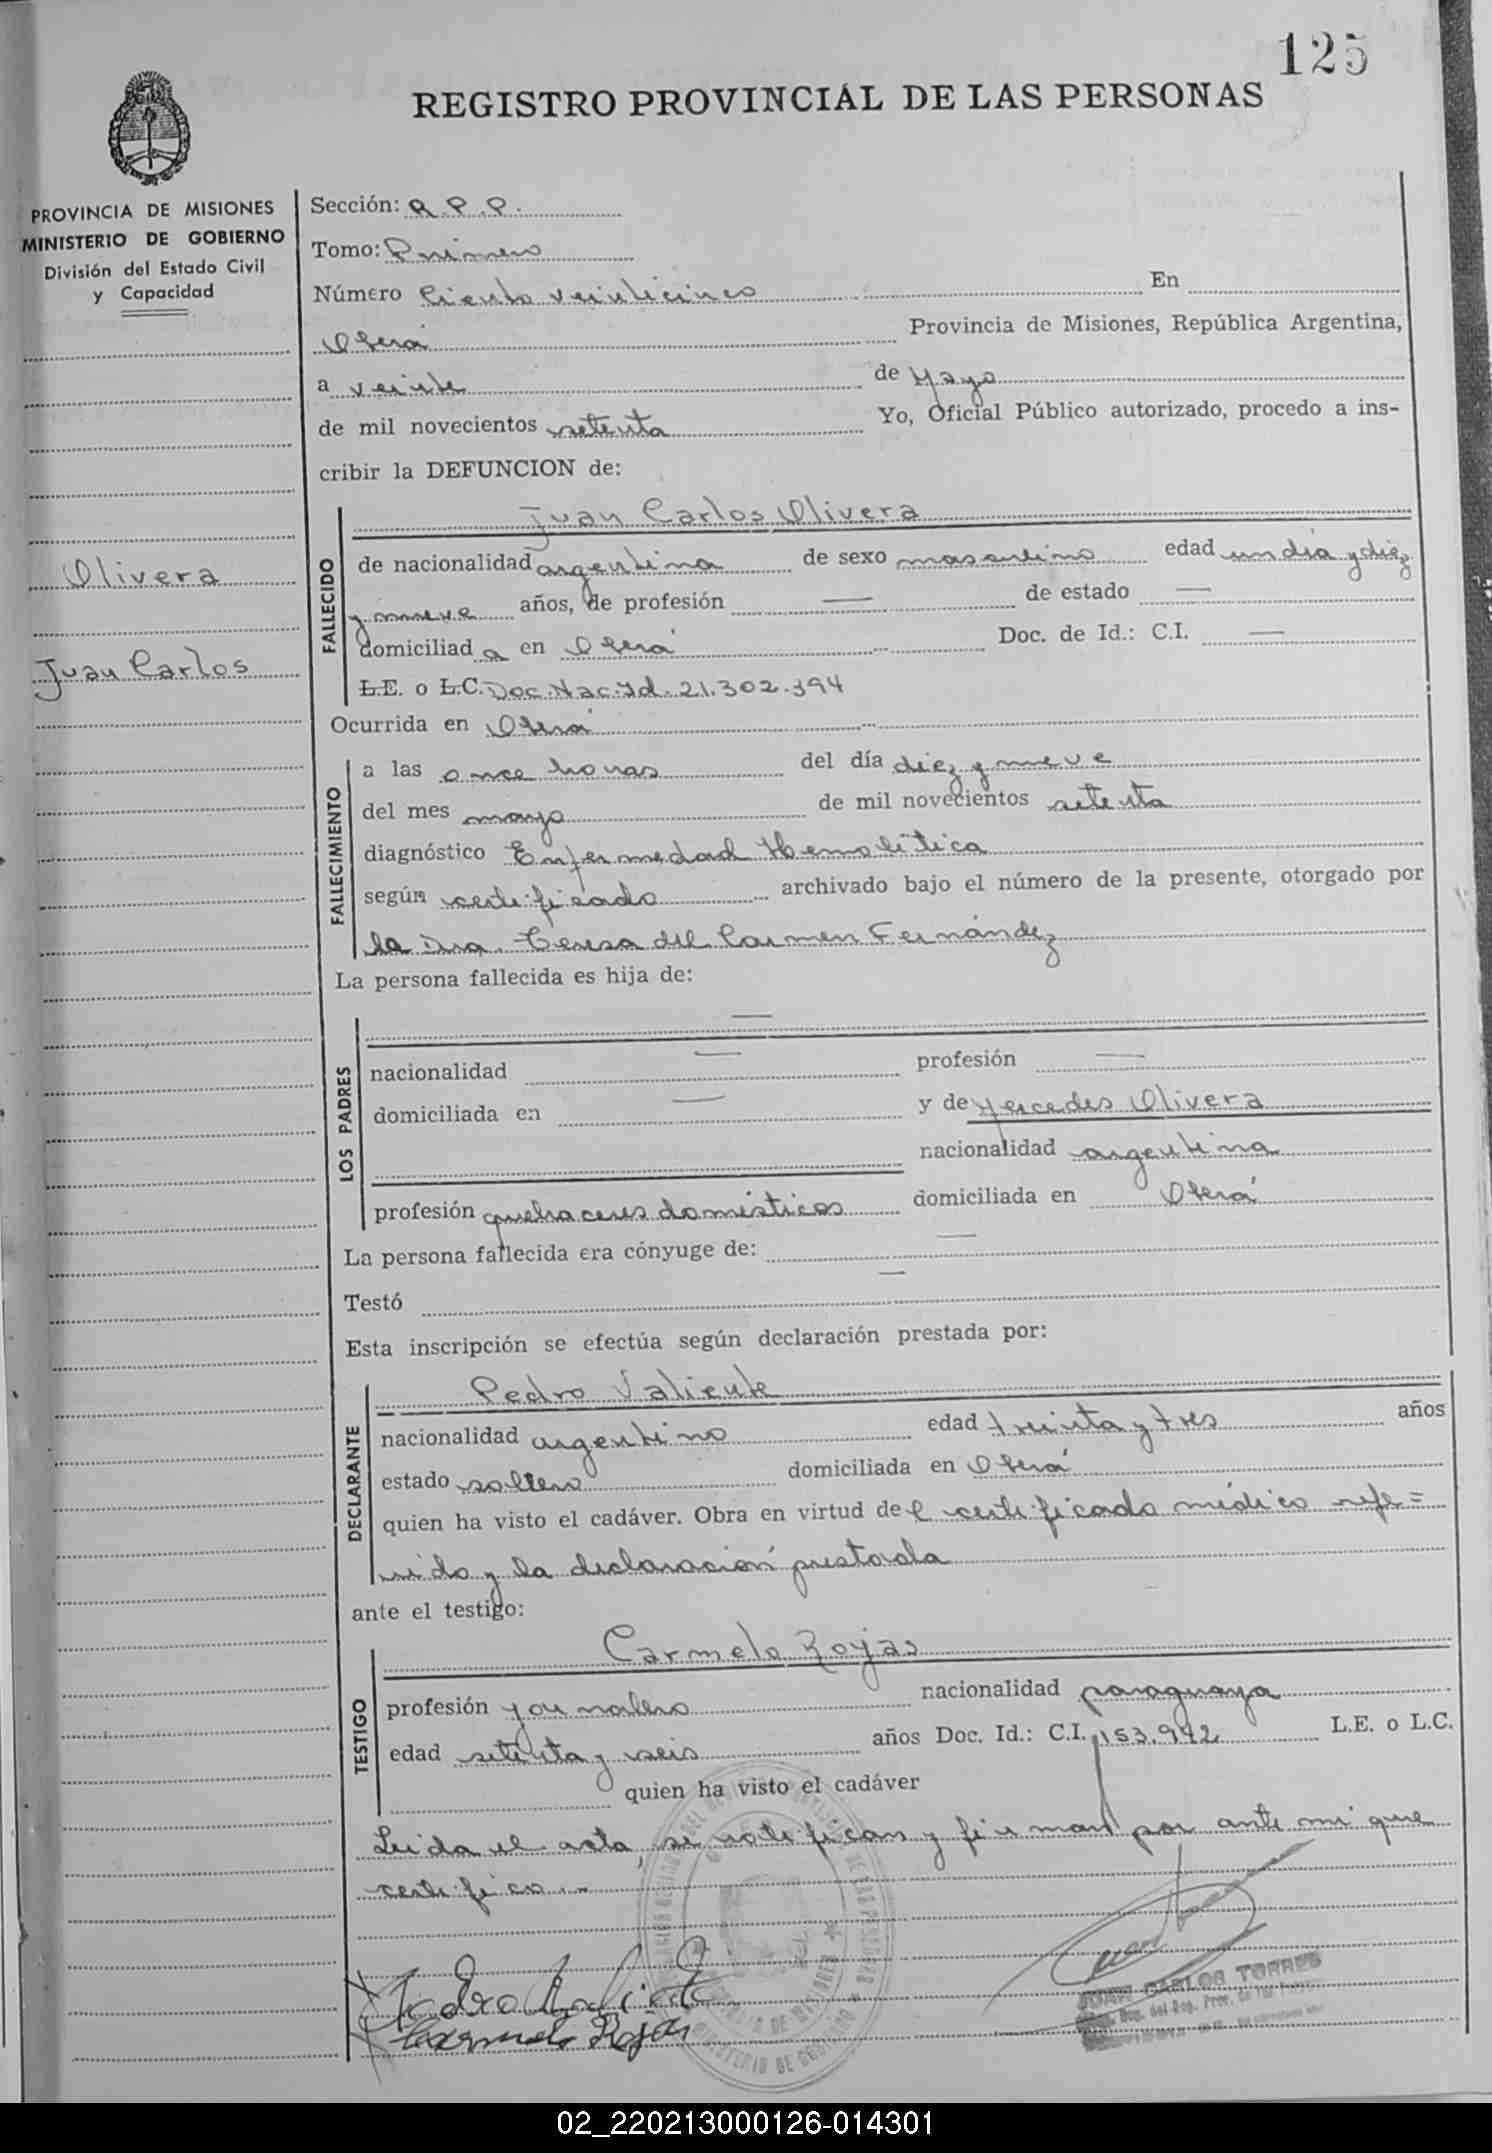 125
REGISTRO PROVINCIAL DE LAS PERSONAS
PROVINCIA DE MISIONES
MINISTERIO DE GOBIERNO
División del Estado Civil
y Capacidad
Olivera
Juan Carlos
Sección: A P.P.
Tomo: Primero
Número Ciento veinticinco En
Oberá Provincia de Misiones, República Argentina,
a veinte de Mayo
de mil novecientos setenta Yo, Oficial Público autorizado, procedo a ins-
cribir la DEFUNCION de:
FALLECIDO
Juan Carlos Olivera
de nacionalidad argentina de sexo masculino edad un día y diez
y nueve años, de profesión — de estado —
domiciliad a en Oberá Doc. de Id.: C.I. —
L.E. o L.C. Doc. Nac. Id. 21.302.394
Ocurrida en Oberá
FALLECIMIENTO
a las once horas del día diez y nueve
del mes mayo de mil novecientos setenta
diagnóstico Enfermedad Hemolítica
según certificado archivado bajo el número de la presente, otorgado por
la Dra. Teresa del Carmen Fernández
La persona fallecida es hija de:
LOS PADRES
—
nacionalidad — profesión —
domiciliada en — y de Mercedes Olivera
nacionalidad argentina
profesión quehaceres domésticos domiciliada en Oberá
La persona fallecida era cónyuge de: —
Testó —
Esta inscripción se efectúa según declaración prestada por:
DECLARANTE
Pedro Valiente
nacionalidad argentino edad treinta y tres años
estado soltero domiciliada en Oberá
quien ha visto el cadáver. Obra en virtud de l certificado médico refe=
rido y la declaración prestada
ante el testigo:
TESTIGO
Carmelo Rojas
profesión jornalero nacionalidad paraguaya
edad setenta y seis años Doc. Id.: C.I. 153.992 L.E. o L.C.
quien ha visto el cadáver
Leida el acta, se notifican y firman por ante mi que
certifico.-
Pedro Valiente
Carmelo Rojas
JUAN CARLOS TORRES
02_220213000126-014301